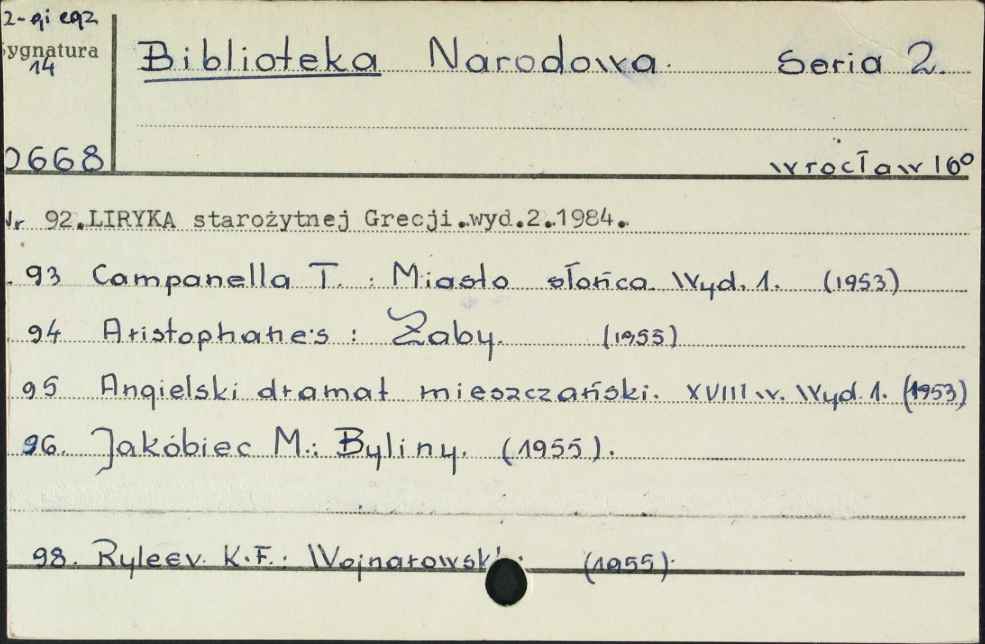 2-gi egz
Sygnatura
14
Biblioteka Narodowa. Seria 2.
0668
Wrocław 16°
Nr 92.LIRYKA starożytnej Grecji.wyd.2.1984.
93 Campanella T. : Miasto słońca. Wyd. 1. (1953)
94 Aristophanes : Żaby. (1955)
95 Angielski dramat mieszczański. XVIII w. Wyd. 1. (1953)
96. Jakóbiec M.: Byliny. (1955).
98. Ryleev. K.F.: Wojnarowski. (1955).